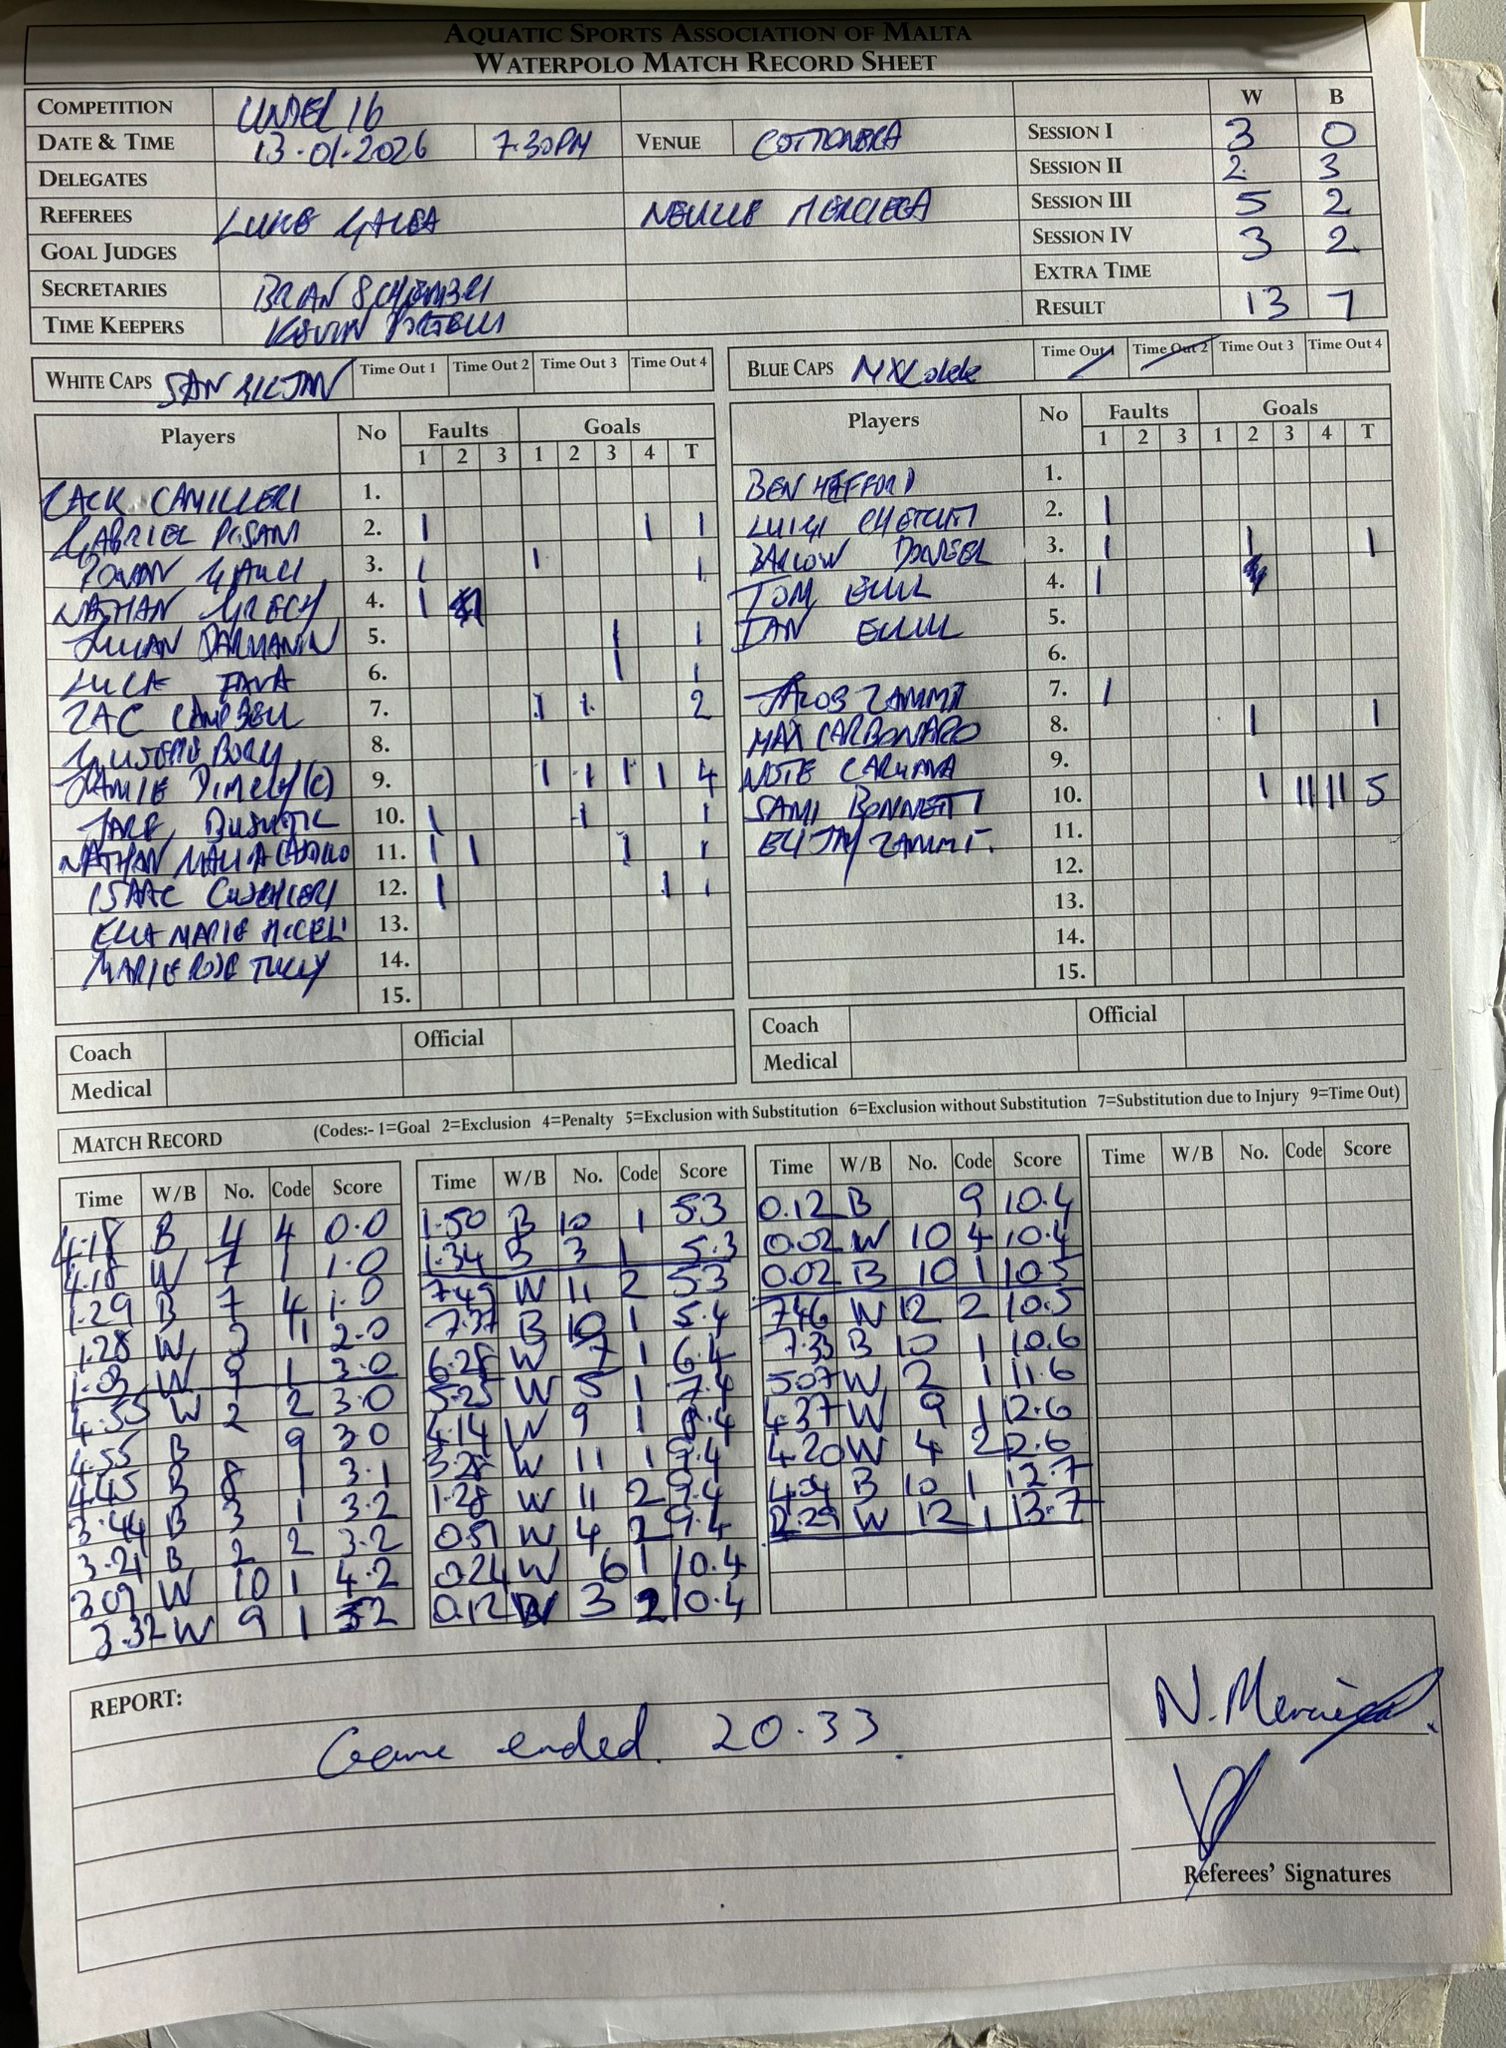 AQUATIC SPORTS ASSOCIATION OF MALTA
WATERPOLO MATCH RECORD SHEET
COMPETITION UNDER 16 W B
DATE & TIME 13.01.2026 7.30PM VENUE COTTONERA SESSION I 3 0
DELEGATES SESSION II 2 3
REFEREES LUKE GALEA NEVILLE MERCIECA SESSION III 5 2
GOAL JUDGES SESSION IV 3 2
SECRETARIES BRIAN SCHEMBRI EXTRA TIME
TIME KEEPERS KEVIN PORTELLI RESULT 13 7
WHITE CAPS SAN GILJAN Time Out 1 Time Out 2 Time Out 3 Time Out 4
Players No Faults Goals
1 2 3 1 2 3 4 T
ZACK CAMILLERI 1.
GABRIEL PISANI 2. 1 1 1
3. 1 1 1
NATHAN GRECH 4. 1
JULIAN DARMANIN 5. 1 1
LUCA FAVA 6. 1 1
ZAC CAMPBELL 7. 1 1 2
8.
JAMIE (C) 9. 1 1 1 1 4
JAKE 10. 1 1 1
NATHAN 11. 1 1 1 1
ISAAC 12. 1 1 1
ELLA MARIE MICELI 13.
MARIE ROSE TULLY 14.
15.
Coach Official
Medical
BLUE CAPS Time Out 1 Time Out 2 Time Out 3 Time Out 4
Players No Faults Goals
1 2 3 1 2 3 4 T
BEN HEFFORD 1.
LUIGI CHETCUTI 2. 1
3. 1 1 1
TOM ELLUL 4. 1
IAN ELLUL 5.
6.
JACOB ZAMMIT 7. 1
MAX CARBONARO 8. 1 1
CARUANA 9.
SAMI BONNETT 10. 1 11 11 5
ELIJAH ZAMMIT. 11.
12.
13.
14.
15.
Coach Official
Medical
MATCH RECORD (Codes:- 1=Goal 2=Exclusion 4=Penalty 5=Exclusion with Substitution 6=Exclusion without Substitution 7=Substitution due to Injury 9=Time Out)
Time W/B No. Code Score
4.18 B 4 4 0.0
4.18 W 7 1 1.0
1.29 B 7 4 1.0
1.28 W 3 1 2.0
1.03 W 9 1 3.0
4.55 W 2 2 3.0
4.55 B 9 3.0
4.45 B 8 1 3.1
3.44 B 3 1 3.2
3.21 B 2 2 3.2
3.09 W 10 1 4.2
W 9 1 5.2
Time W/B No. Code Score
1.50 B 10 1 5.3
1.34 B 3 1 5.3
7.49 W 11 2 5.3
7.37 B 10 1 5.4
6.28 W 7 1 6.4
5.25 W 5 1 7.4
4.14 W 9 1 8.4
3.28 W 11 1 9.4
1.28 W 11 2 9.4
0.51 W 4 2 9.4
W 6 1 10.4
0.12 3 2 10.4
Time W/B No. Code Score
0.12 B 9 10.4
0.02 W 10 4 10.4
0.02 B 10 1 10.5
7.46 W 12 2 10.5
7.33 B 10 1 10.6
5.07 W 2 1 11.6
4.37 W 9 1 12.6
4.20 W 4 2 12.6
B 10 1 12.7
2.29 W 12 1 13.7
Time W/B No. Code Score
REPORT:
Game ended. 20.33.
N. Mercieca
Referees' Signatures